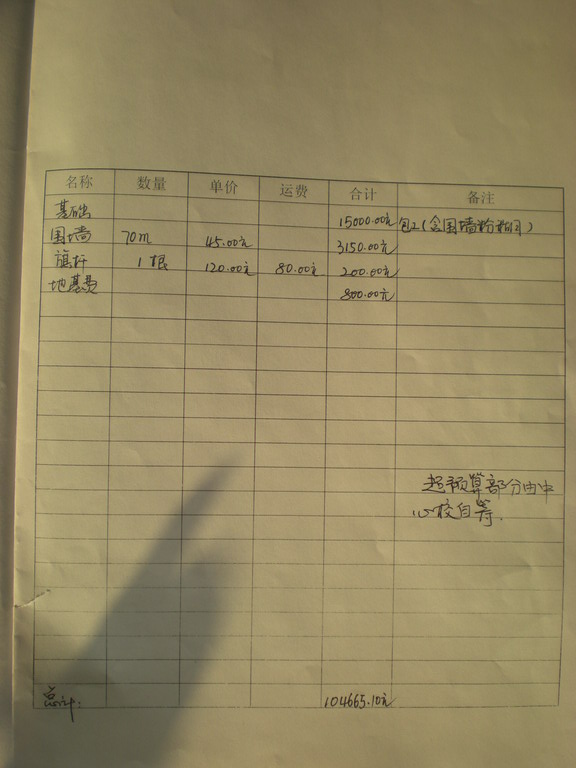 名称 数量 单价 运费 合计 备注
基础 15000.00元 包工(含围墙粉刷)
围墙 70m 45.00元 3150.00元
旗杆 1根 120.00元 80.00元 200.00元
地基费 800.00元
超预算部分由中
心校自筹.
总计: 104665.10元